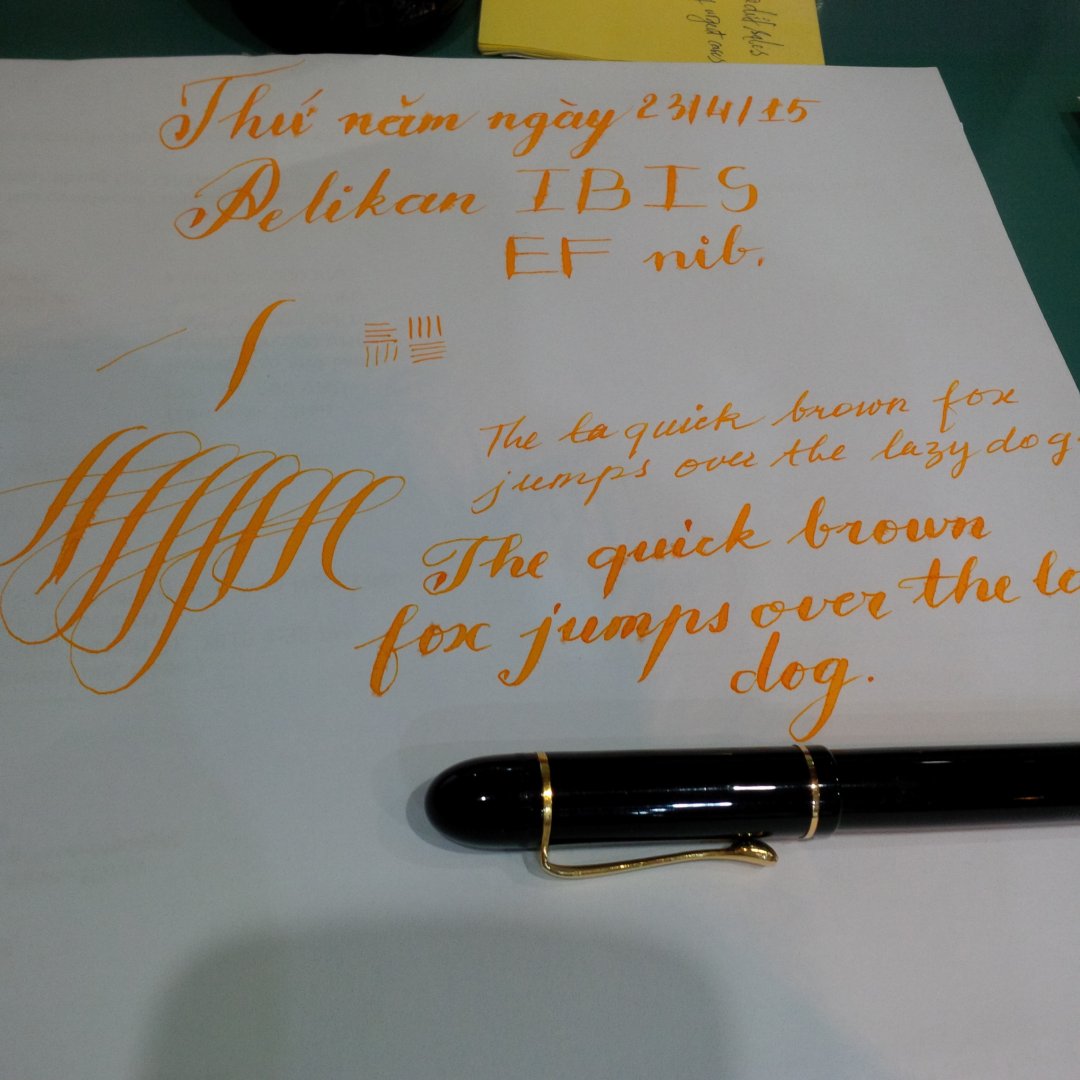 Thứ năm ngày 23/4/15
Pelikan IBIS
EF nib.
The ta quick brown fox
jumps over the lazy dog.
The quick brown
fox jumps over the la
dog.